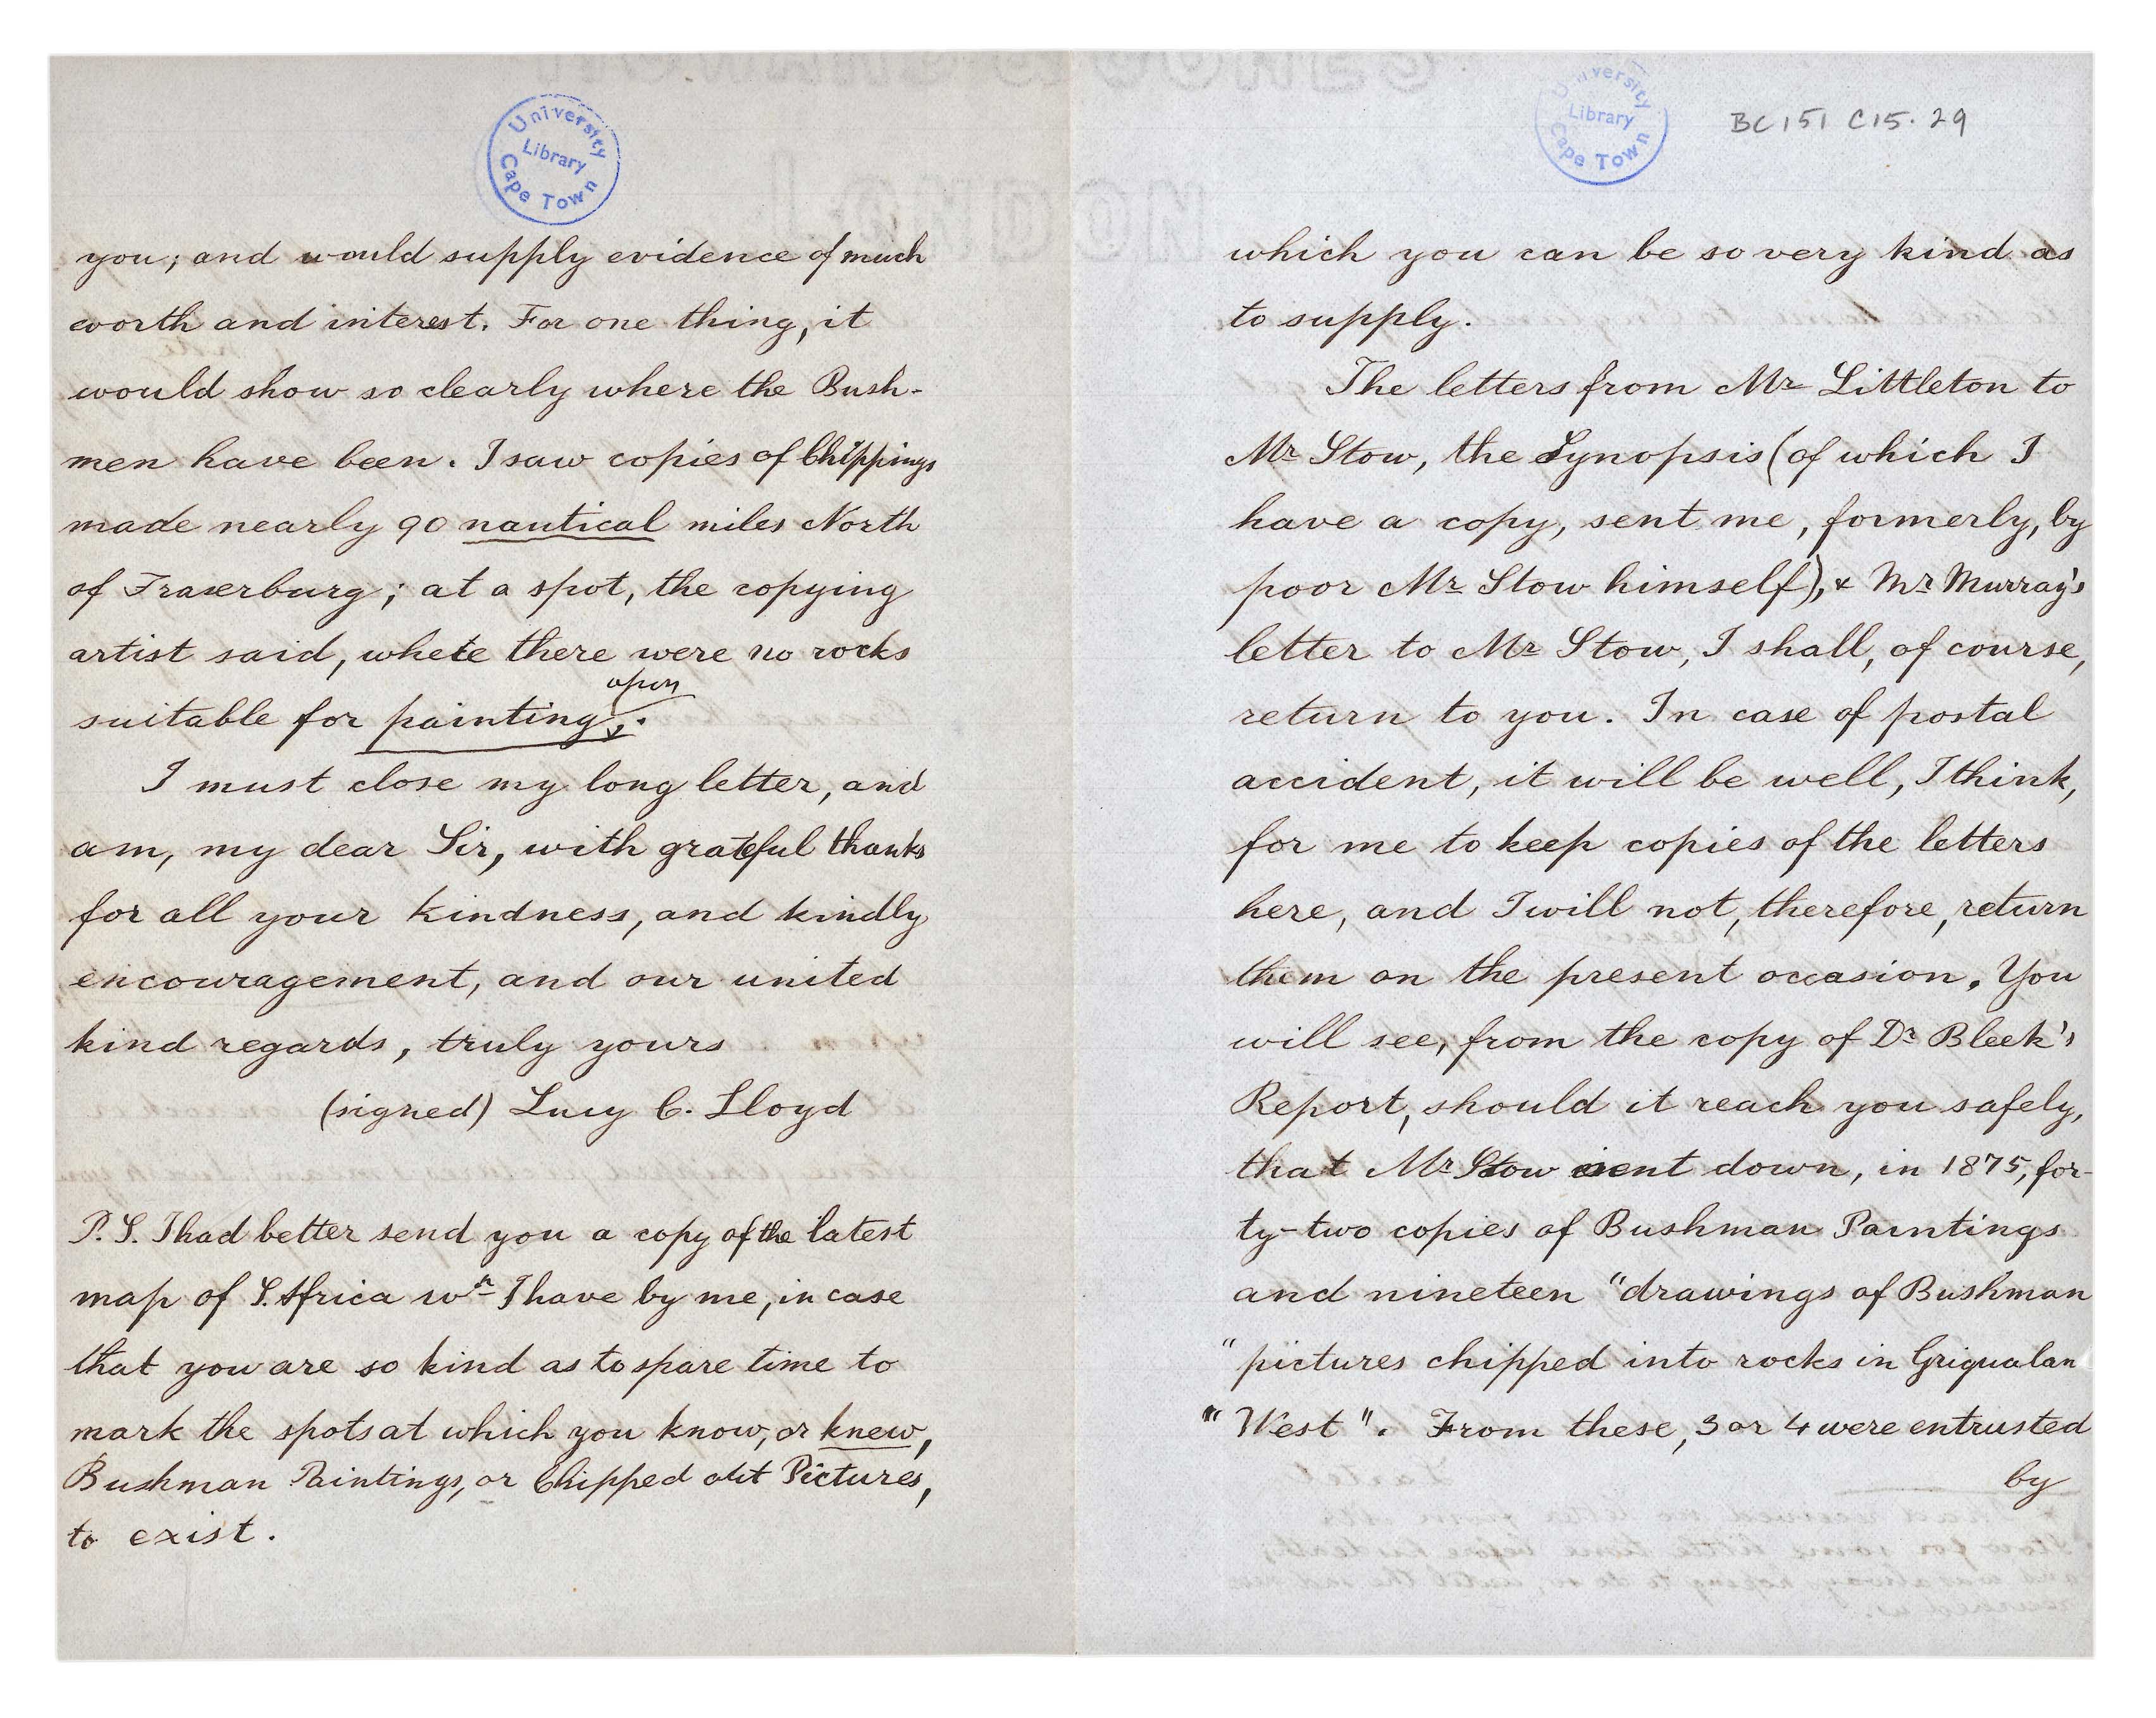 University
Library
Cape Town
you; and would supply evidence of much
worth and interest. For one thing, it
would show so clearly where the Bush-
men have been. I saw copies of Chippings
made nearly 90 nautical miles North
of Fraserburg; at a spot, the copying
artist said, where there were no rocks
suitable for painting upon.
I must close my long letter, and
am, my dear Sir, with grateful thanks
for all your kindness, and kindly
encouragement, and our united
kind regards, truly yours
(signed) Lucy C. Lloyd
P.S. I had better send you a copy of the latest
map of S. Africa wh I have by me, in case
that you are so kind as to spare time to
mark the spots at which you know, or knew,
Bushman Paintings, or Chipped out Pictures,
to exist.
University
Library
Cape Town
BC151 C15.29
which you can be so very kind as
to supply.
The letters from Mr Littleton to
Mr Stow, the Synopsis (of which I
have a copy, sent me, formerly, by
poor Mr Stow himself), & Mr Murray's
letter to Mr Stow, I shall, of course,
return to you. In case of postal
accident, it will be well, I think,
for me to keep copies of the letters
here, and I will not, therefore, return
them on the present occasion. You
will see, from the copy of Dr Bleek's
Report, should it reach you safely,
that Mr Stow sent down, in 1875, for-
ty-two copies of Bushman Paintings
and nineteen "drawings of Bushman
"pictures chipped into rocks in Griqualan
"West". From these, 3 or 4 were entrusted
by